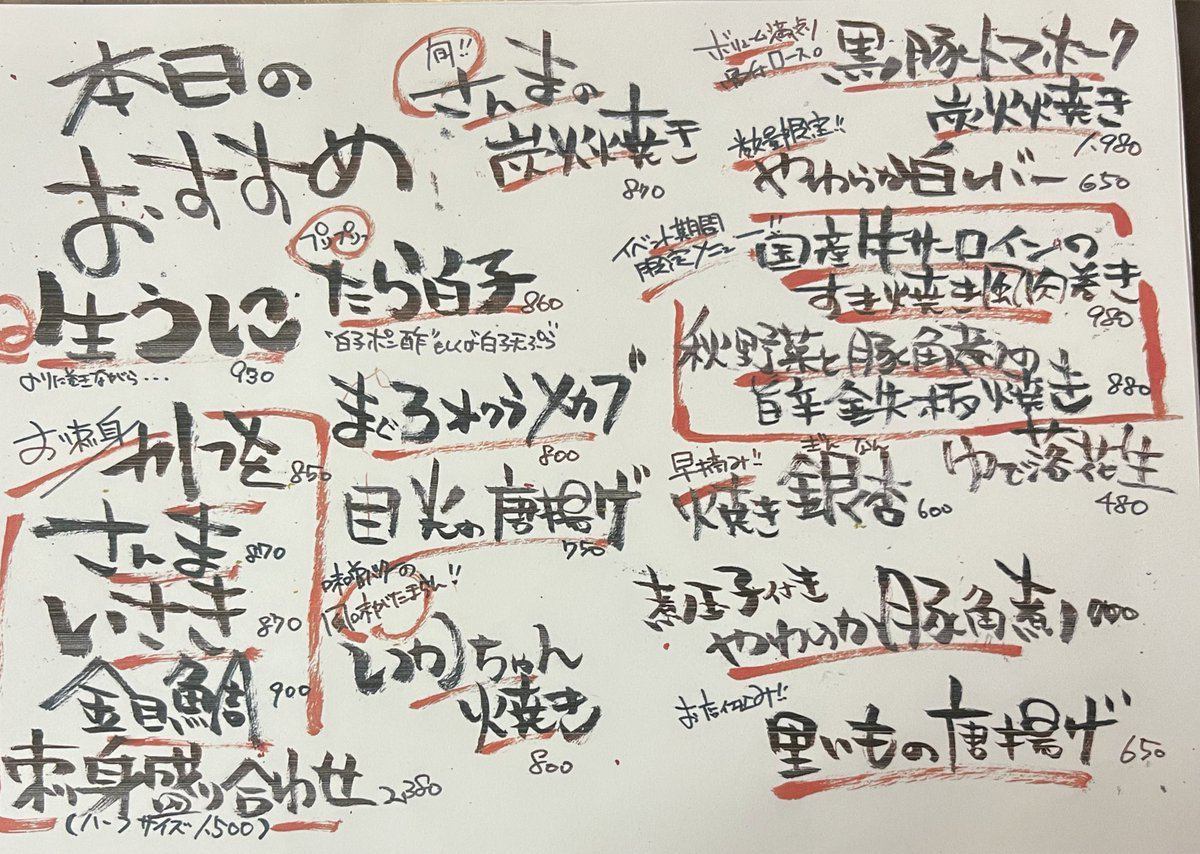 本日の
おすすめ
生うに
930
のりに巻きながら...
お刺身
かつを
850
さんま
870
いさき
870
金目鯛
900
刺身盛り合わせ 2,380
(ハーフサイズ1,500)
旬!!
さんまの
炭火焼き
870
プリップリッ
たら白子
860
"白子ポン酢"もしくは"白子天ぷら"
まぐろ メカブ
800
目光の唐揚げ
750
味噌バターの
風味がたまらん!!
いかちゃん
焼き
800
ボリューム満点!
骨付ロース。
黒豚トマホーク
炭火焼き
1,980
数量限定!!
やわらか白レバー 650
イベント期間
限定メニュー!!
国産牛サーロインの
すき焼き風肉巻き
980
秋野菜と豚角煮の
旨辛鉄板焼き 880
早摘み!!
焼き銀杏
ぎんなん
600
ゆで落花生
480
煮玉子付き
やわらか豚角煮
里いもの唐揚げ 650